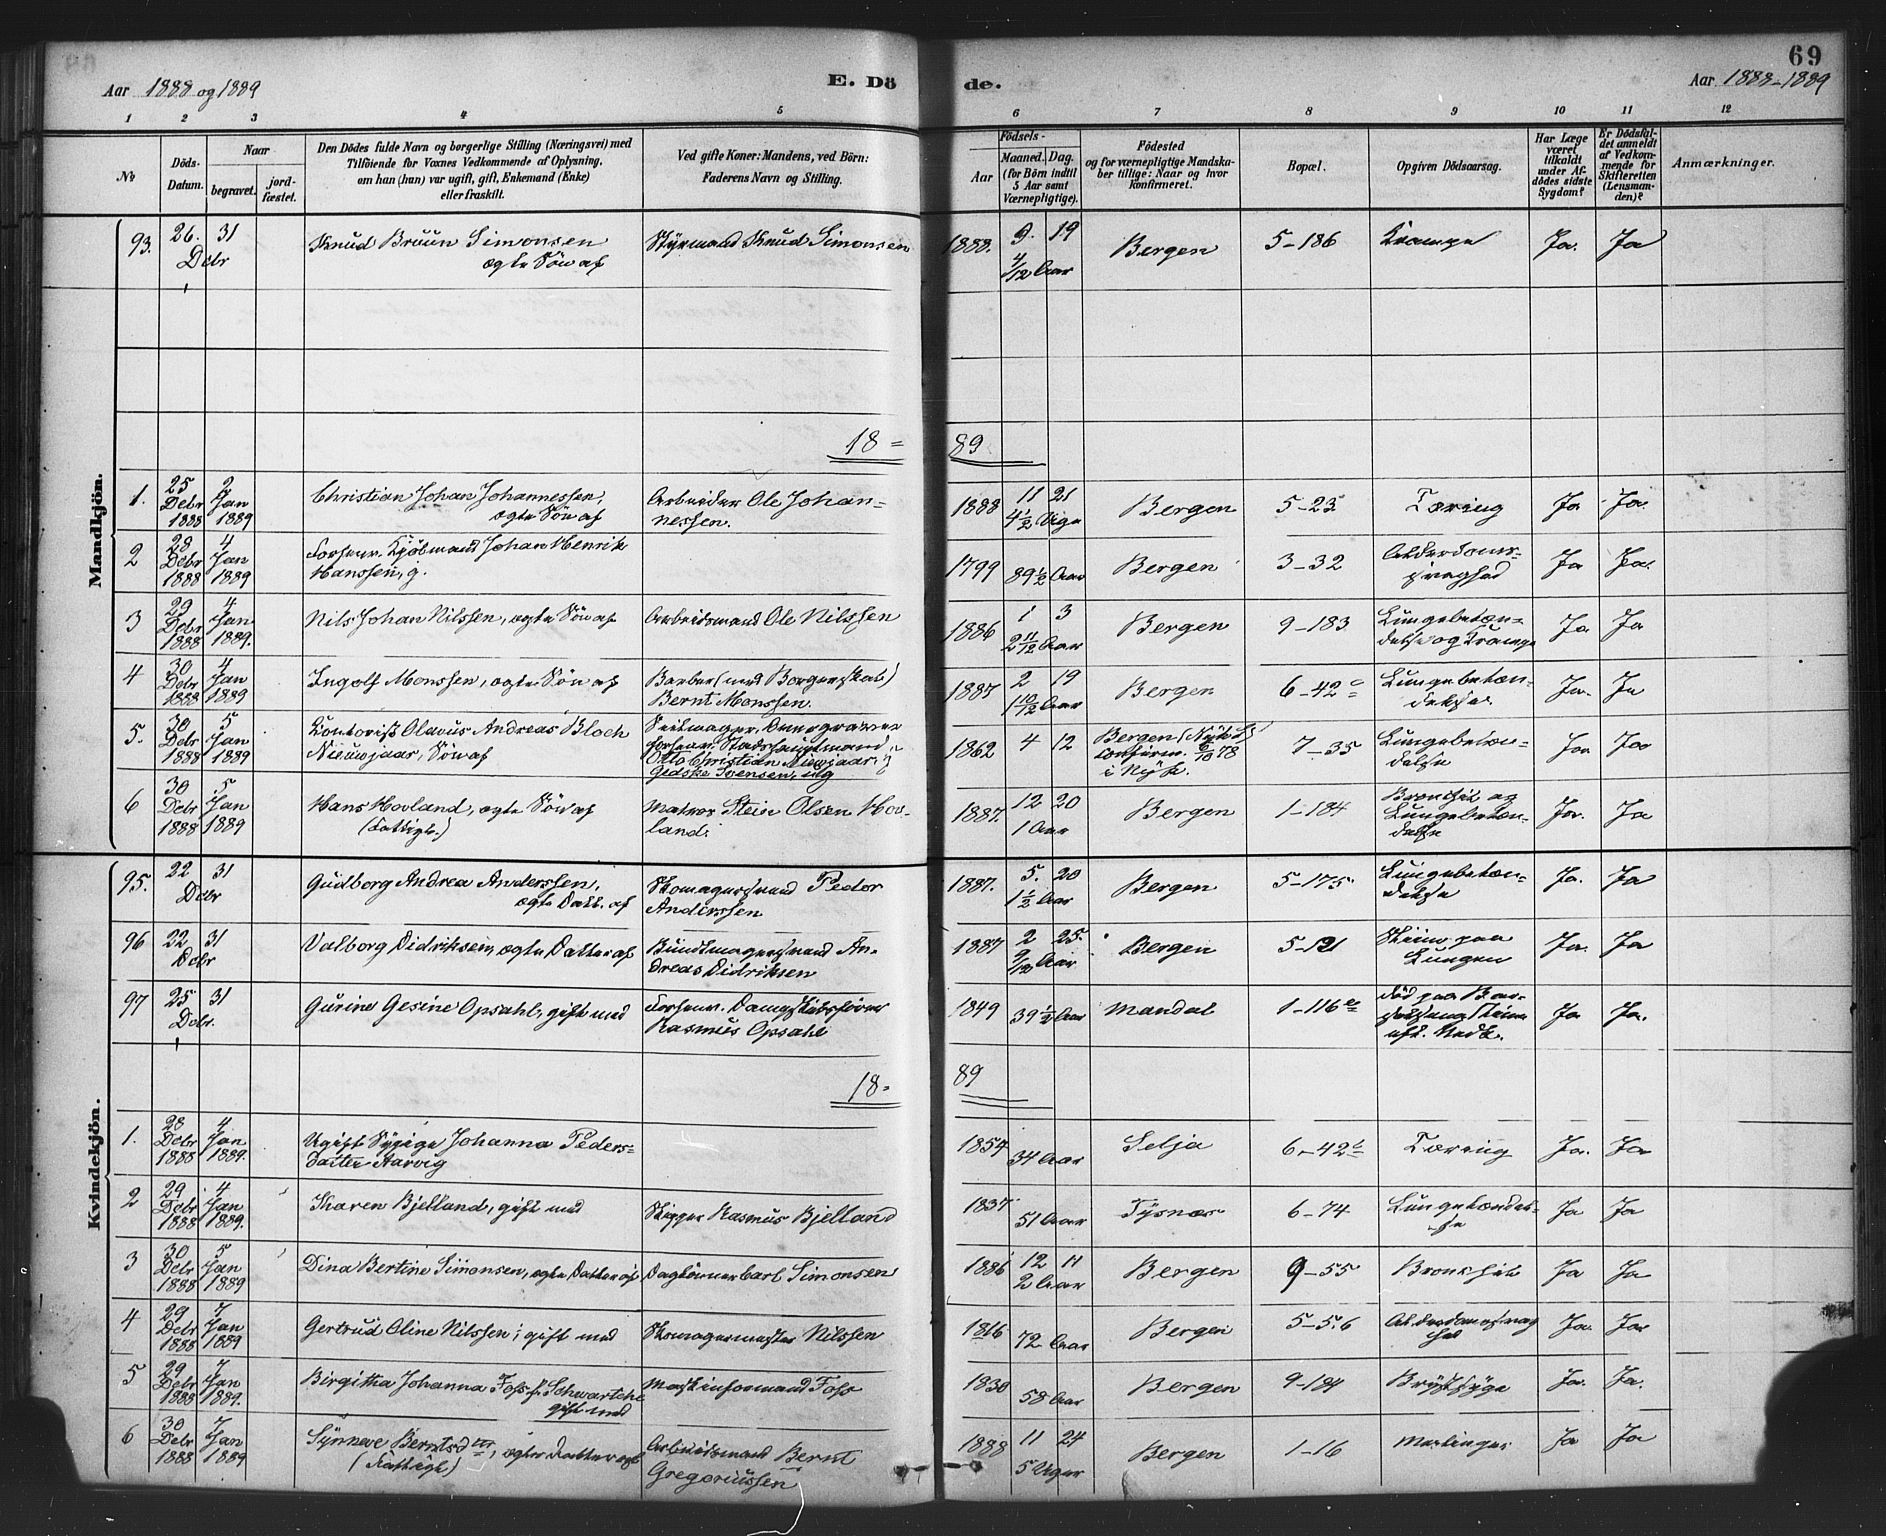 Aar 1888 og 1889
E. Dö
de.
69
Aar 1888-1889
1 2 3 4 5 6 7 8 9 10 11 12
No
Döds-Datum.
Naar
begravet.
jord-fæstet.
Den Dödes fulde Navn og borgerlige Stilling (Næringsvei) med
Tilföiende for Voxnes Vedkommende af Oplysning,
om han (hun) var ugift, gift, Enkemand (Enke)
eller fraskilt.
Ved gifte Koner: Mandens, ved Börn:
Faderens Navn og Stilling.
Födsels-
Aar
Maaned. Dag.
(for Börn indtil
5 Aar samt
Værnepligtige).
Födested
og for værnepligtige Mandska-
ber tillige: Naar og hvor
konfirmeret.
Bopæl.
Opgiven Dödsaarsag.
Har Læge
været
tilkaldt
under Af-
dödes sidste
Sygdom?
Er Dödsfal-
det anmeldt
af Vedkom-
mende for
Skifteretten
(Lensman-
den)?
Anmærkninger.
Mandkjön.
93. 26. Dcbr 31 Knud Bruun Simonsen ægte Sön af Styrmand Knud Simonsen 1888. 9. 19 4/12 Aar Bergen 5-186 Krampe Ja. Ja
18= 89
1. 25 Debr 1888 2 Jan 1889 Christian Johan Johannessen, ægte Sön af Arbeider Ole Johan-
nessen. 1888 11 21 4½ Uge Bergen 5-23 Tæring Ja Ja.
2 28 Debr 1888 4 Jan 1889 Forhenv. Kjöbmand Johan Henrik
Hanssen, g. 1799 89½ Aar Bergen 3-32 Alderdoms-
svaghed Ja Ja.
3 29 Debr 1888 4 Jan 1889. Nils Johan Nilssen, ægte Sön af Arbeidsmand Ole Nilssen 1886 1 3 2 11/12 Aar Bergen 9-183 Lungebetæn-
delse og Krampe Ja Ja
4 30 Debr 1888 4 Jan 1889 Ingolf Monssen, ægte Sön af Barber (med Borgerskab)
Bernt Monssen. 1887 2 19 1 10/12 Aar Bergen 6-42c Lungebetæn-
delse. Ja. Ja
5. 30 Debr 1888 5 Jan 1889 Kontorist Olavus Andreas Bloch
Nieuwjaar, Sön af Seilmager,
forhenv. Stadshauptmand
Otto Christian Nieuwjaar
Gedske Svensen, ulg 1862 4 12 Bergen (Nyk.)
confirm. 78
i Nyk. 7-35 Lungebetæn-
delse Ja Ja
6 30 Debr 1888 5 Jan 1889 Hans Hovland, ægte Sön af
(Fattigl.) Matros Steen Olsen Hov-
land. 1887. 12 20 1 Aar Bergen 1-184 Bronchit og
Lungebetæn-
delse Ja. Ja
Kvindekjön.
95. 22 Dcbr 31 Gudborg Andrea Anderssen,
ægte Datt. af Skomagersvend Peder
Anderssen 1887. 5. 20 1½ Aar Bergen 5-175. Lungebetæn-
delse Ja. Ja
96 22 Dcbr 31 Valborg Didriksen, ægte Datter af Buntmagersvend An-
dreas Didriksen 1887 2 25. 9/12 Aar Bergen 5-121 Sliim paa
Lungen Ja. Ja
97 25 Dcbr. 31 Gurine Gesine Opsahl, gift med Forhenv. Dampskibsförer
Rasmus Opsahl 1849 39½ Aar Mandal 1-116 död paa Bar- Ja Ja.
18= 89
1. 28 Debr 1888 4 Jan 1889. Ugift Sypige Johanna Peders-
datter Aarvig 1854 34 Aar Selja 6-42 Tæring Ja. Ja
2 29 Debr 1888 4 Jan 1889. Karen Bjelland, gift med Skipper Rasmus Bjelland 1837 51 Aar Tysnæs 6-74 Lungebetændel-
se Ja Ja
3 30 Debr 1888 5 Jan 1889 Dina Bertine Simonsen, ægte Datter af Daglönner Carl Simonsen 1886 12 11 2 Aar Bergen 9-55 Bronkhit Ja Ja
4 29 Debr 1888 7 Jan 1889 Gertrud Oline Nilssen, gift med Skomagermester Nilssen 1816 72 Aar Bergen 5-5.6 Alderdomssvag
hed Ja. Ja
5 29 Debr 1888 7 Jan 1889. Birgitha Johanna Foss f. Schwartche
gift med Maskinformand Foss 1830 58 Aar Bergen 9-184 Brystsyge Ja. Ja.
6 30 Debr 1888 7 Jan 1889 Synneve Berntsdtr, ægte Datter af
(Fattigl) Arbeidsmand Bernt
Gregoriussen 1888 11 24 5 Uger Bergen 1-16 Mæslinger Ja Ja